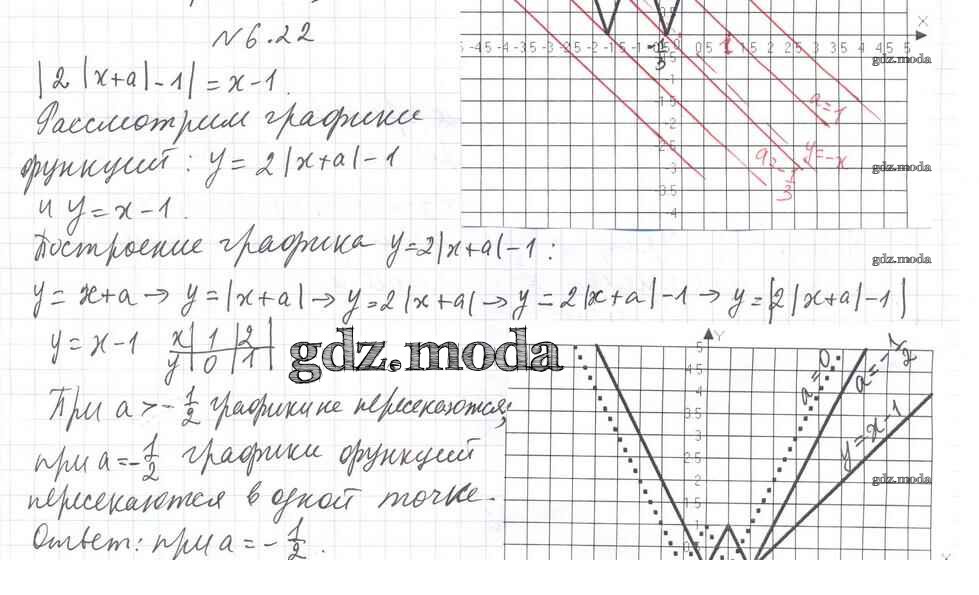 N 6.22
|2|x+a|-1| = x-1.
Рассмотрим графики
функций: y = 2|x+a|-1
и y = x-1.
Построение графика y=2|x+a|-1:
y = x+a → y = |x+a| → y=2|x+a| → y = 2|x+a|-1 → y = |2|x+a|-1|
y = x-1
x | 1 | 2
y | 0 | 1
При a > -1/2 графики не пересекаются;
при a = -1/2 графики функций
пересекаются в одной точке.
Ответ: при a = -1/2.
gdz.moda
X
-4.5 -4 -3.5 -3 -2.5 -2 -1.5 -1
0.5 1 1.5 2 2.5 3 3.5 4 4.5 5
-1/3
a=1
y=-x
a=-1/3
gdz.moda
gdz.moda
gdz.moda
Y
a=0
a=-1/2
y=x-1
gdz.moda